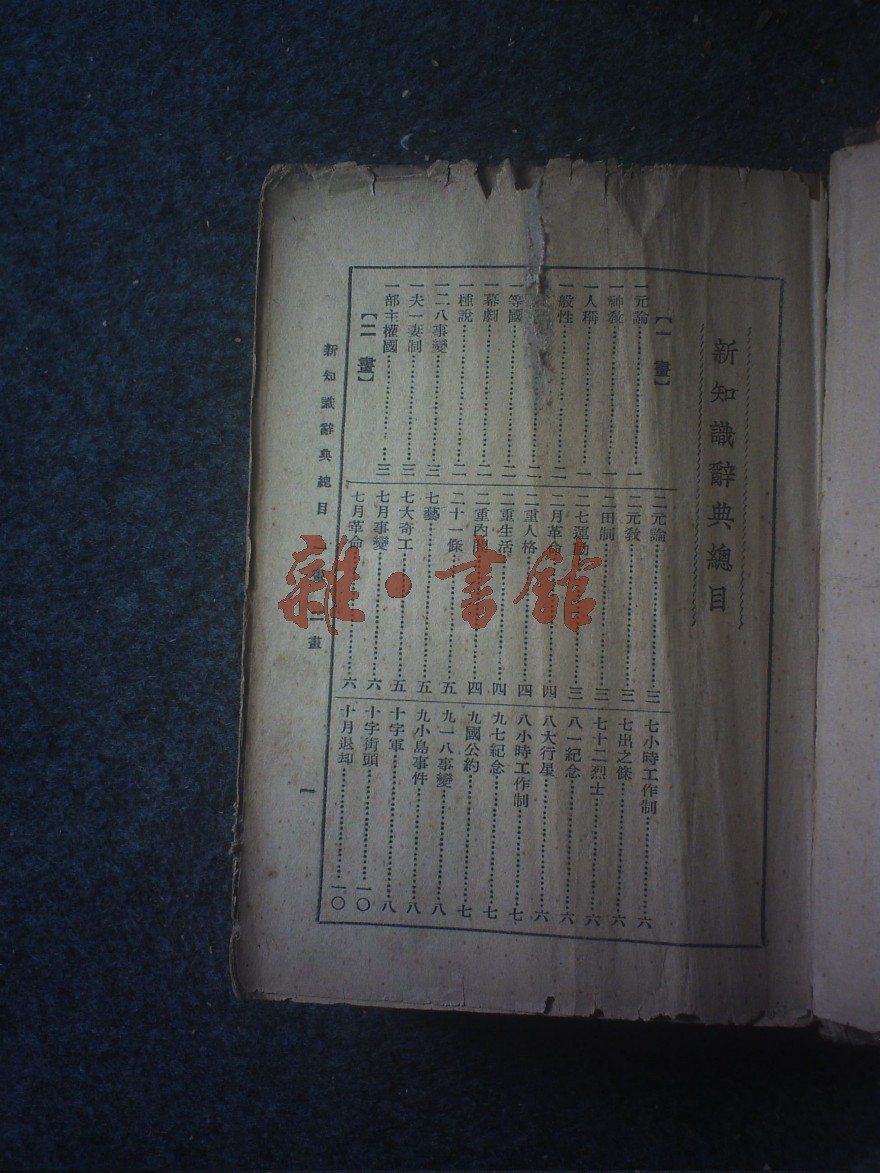 新知識辭典總目
【一 畫】
一元論……一
一神敎……一
一人稱……一
一般性……一
一等國……二
一幕劇……二
一種說……二
一二八事變……三
一夫一妻制……三
一部主權國……三
【二 畫】
二元論……三
二元敎……三
二田制……三
二七運動……三
二月革命……四
二重人格……四
二重生活……四
二重內閣……四
二十一條……五
七藝……五
七大奇工……五
七月事變……六
七月革命……六
七小時工作制……六
七出之條……六
七十二烈士……六
八一紀念……六
八大行星……六
八小時工作制……七
九七紀念……七
九國公約……七
九一八事變……八
九小島事件……八
十字軍……八
十字街頭……一〇
十月退却……一〇
新知識辭典總目 二畫
一
雜·書館